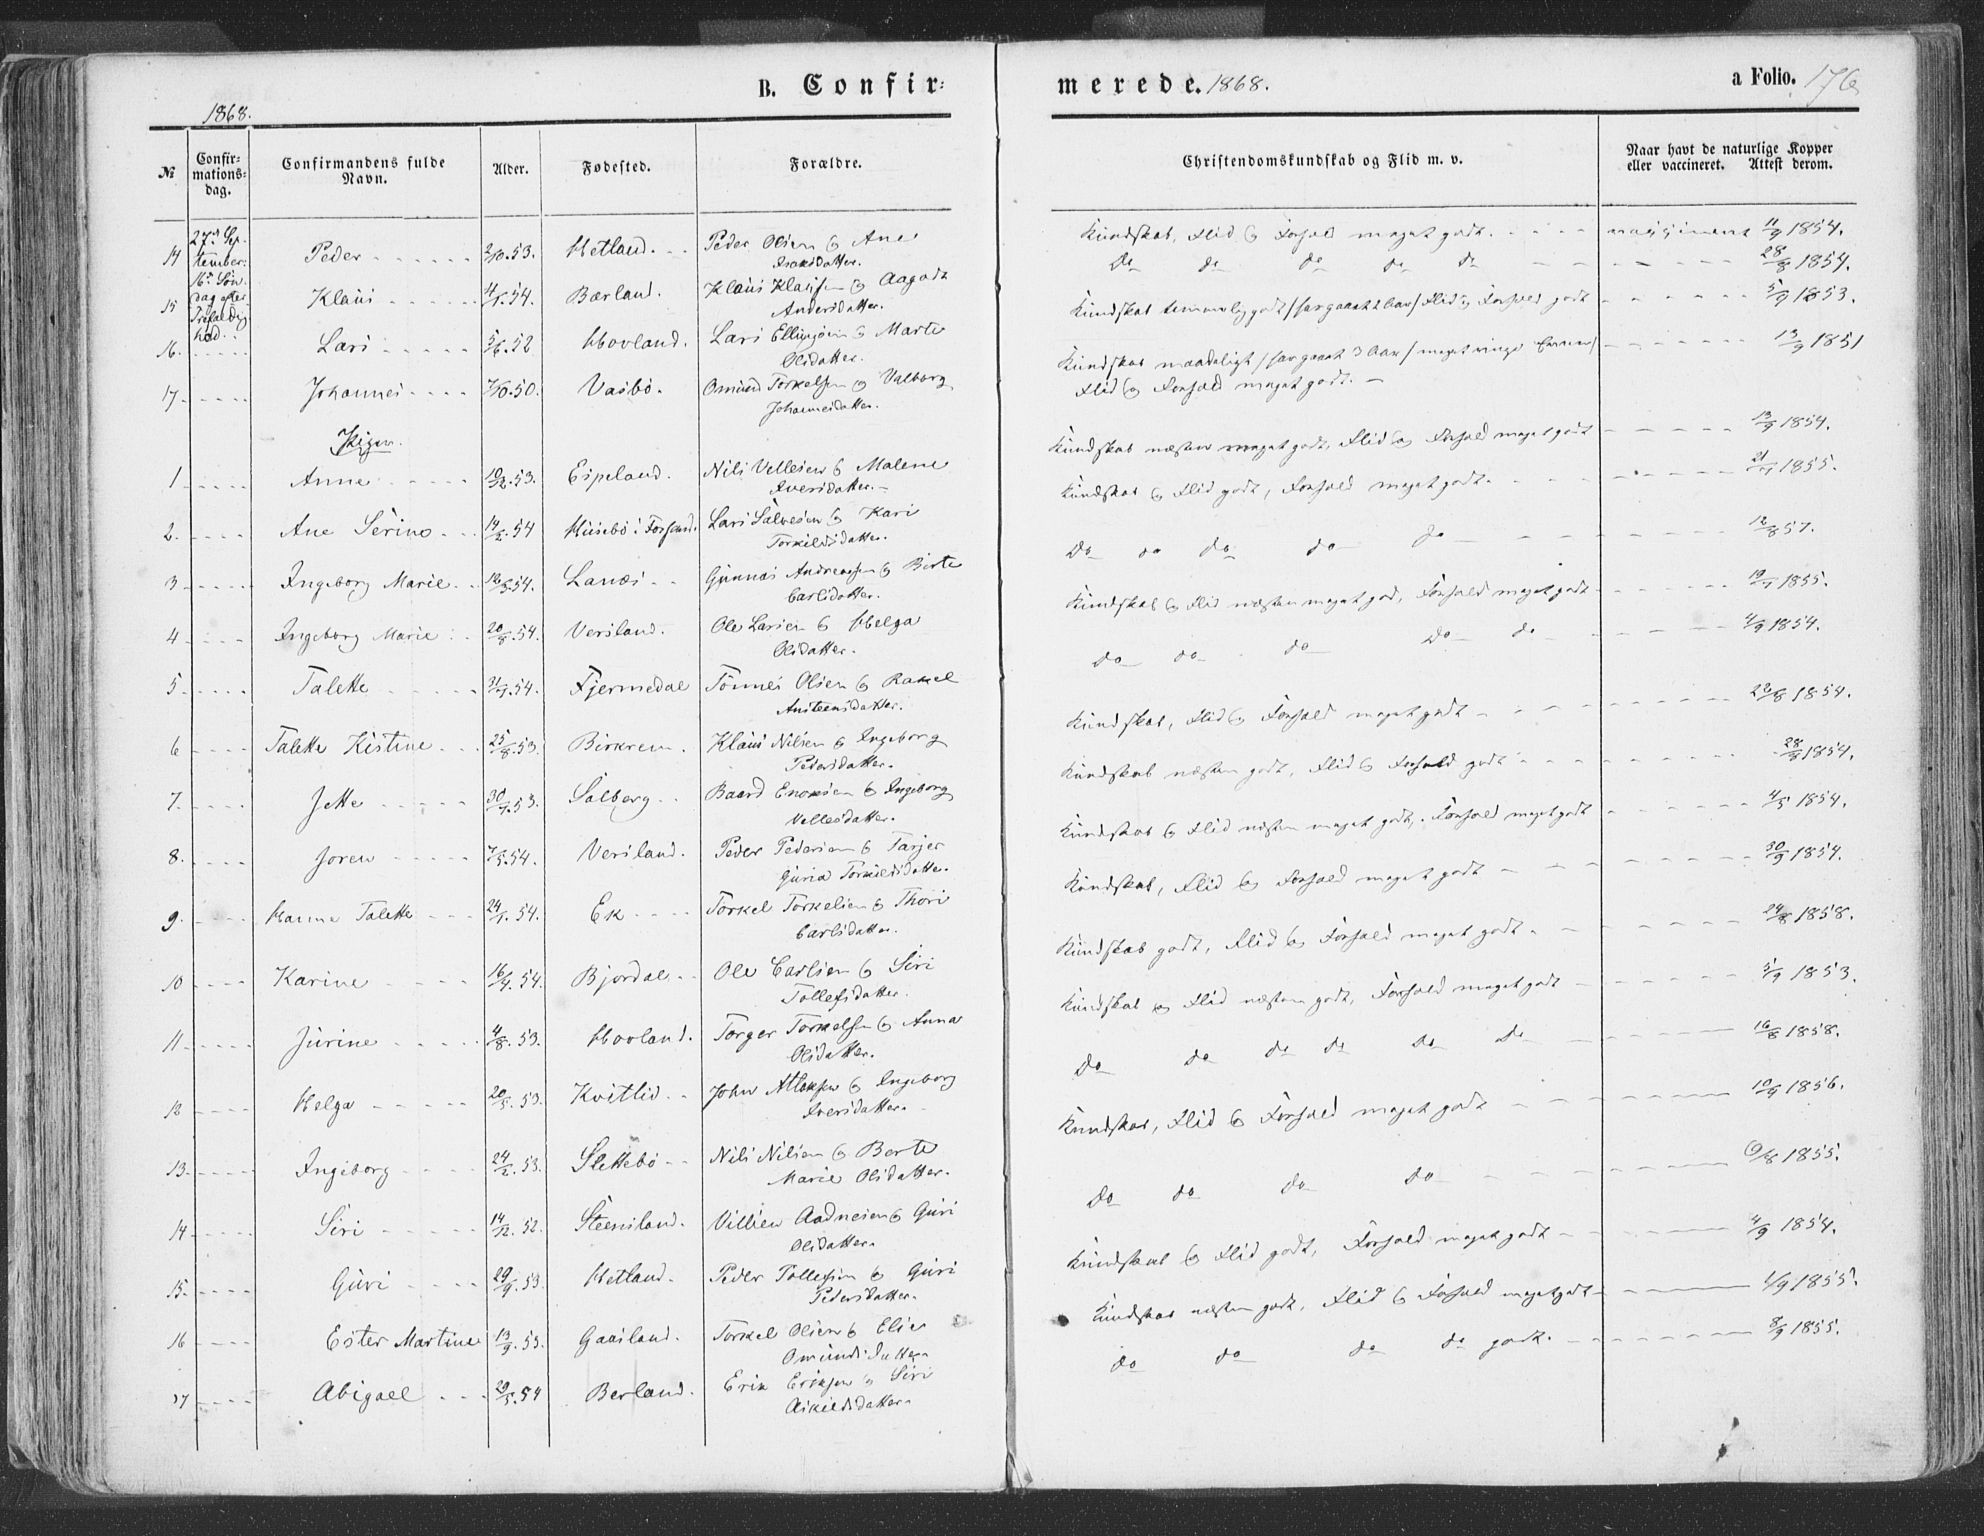 B. Confir=
1868.
№ Confir=mations=dag. Confirmandens fulde Navn. Alder. Fødested. Forældre.
14 27de September 16de Søndag efter Trefoldighed. Peder 2/10.53. Hetland. Peder Olsen & Ane
Isaksdatter.
15 Klaus 4/1.54. Bærland. Klaus Klausen & Aagodt
Andersdatter.
16. Lars 5/6.52 Hovland. Lars Ellingsen & Marte
Olsdatter.
17. Johannes 7/10.50. Vasbö. Osmund Torkelsen & Valborg
Johannesdatter.
Piger.
1 Anne 10/12.53. Espeland. Nils Vellesen & Malene
Iversdatter.
2. Ane Serine 14/2.54 Husebö i Forsand. Lars Salvesen & Kari
Torkildsdatter.
3 Ingeborg Marie 16/3.54. Lanæs Gunnar Andreassen & Birte
Carlsdatter.
4 Ingeborg Marie 20/8.54. Versland. Ole Larsen & Helga
Olsdatter.
5 Talette 31/7.54. Fjermedal Tönnes Olsen & Rakel
Anstensdatter.
6 Talette Kistine 25/8.53. Birkrem. Klaus Nilsen & Ingeborg
Pedersdatter.
7. Jette 30/7.53. Solberg Baard Enoksen & Ingeborg
Vellesdatter.
8. Joren 7/5.54. Versland. Peder Pedersen & Tarjer
Guria Torkildsdatter.
9. Hanne Talette 24/1.54. Ek Torkel Torkelsen & Thori
Carlsdatter.
10 Karine 16/4.54. Bjordal Ole Carlsen & Siri
Tollefsdatter.
11 Jurine 4/8.53. Hovland. Torger Torkelsen & Anna
Olsdatter.
12 Helga 20/5.53. Kvitlid John Atlaksen & Ingeborg
Iversdatter.
13. Ingeborg 24/2.53. Slettebö Nils Nilsen & Berte
Marie Olsdatter.
14 Siri 14/12.52. Steensland. Villien Aadnesen & Guri
Olsdatter.
15. Guri 29/9.53. Hetland. Peder Tollefsen & Guri
Pedersdatter.
16 Ester Martine 13/9.53. Gaasland. Torkel Olsen & Elise
Omundsdatter.
17 Abigael 20/5.54 Berland. Erik Eriksen & Siri
Askildsdatter.
merede. 1868.
a Folio. 176
Christendomskundskab og Flid m. v. Naar havt de naturlige Kopper eller vaccineret. Attest derom.
Kundskab, Flid & Forhold meget godt. vaccineret 11/9 1854.
Do do do do do 28/8 1854.
Kundskab temmelig godt / har gaaet 2 Aar / Flid & Forhold godt 5/9 1853.
Kundskab maadeligt / har gaaet 3 Aar / meget ringe Evner / 13/9 1851
Flid & Forhold meget godt.
Kundskab næsten meget godt, Flid & Forhold meget godt 13/9 1854.
Kundskab & Flid godt, Forhold meget godt. 21/7 1855.
Do do do do do 12/8 57.
Kundskab & Flid næsten meget god, Forhold meget godt 19/7 1855.
do do do do do 4/9 1854.
Kundskab, Flid & Forhold meget godt 22/8 1854.
Kundskab næsten godt, Flid & Forhold godt 28/8 1854.
Kundskab & Flid næsten meget godt, Forhold meget godt 4/5 1854.
Kundskab, Flid & Forhold meget godt 30/9 1854.
Kundskab godt, Flid & Forhold meget godt 24/8 1858.
Kundskab & Flid næsten godt, Forhold meget godt 5/9 1853.
Do do do do do do 16/8 1858.
Kundskab, Flid & Forhold meget godt 10/9 1856.
Do do do do 6/8 1855.
Kundskab & Flid godt, Forhold meget godt 4/9 1854.
Kundskab næsten godt, Flid & Forhold meget godt 1/9 1855.
do do do do godt. 8/9 1855.